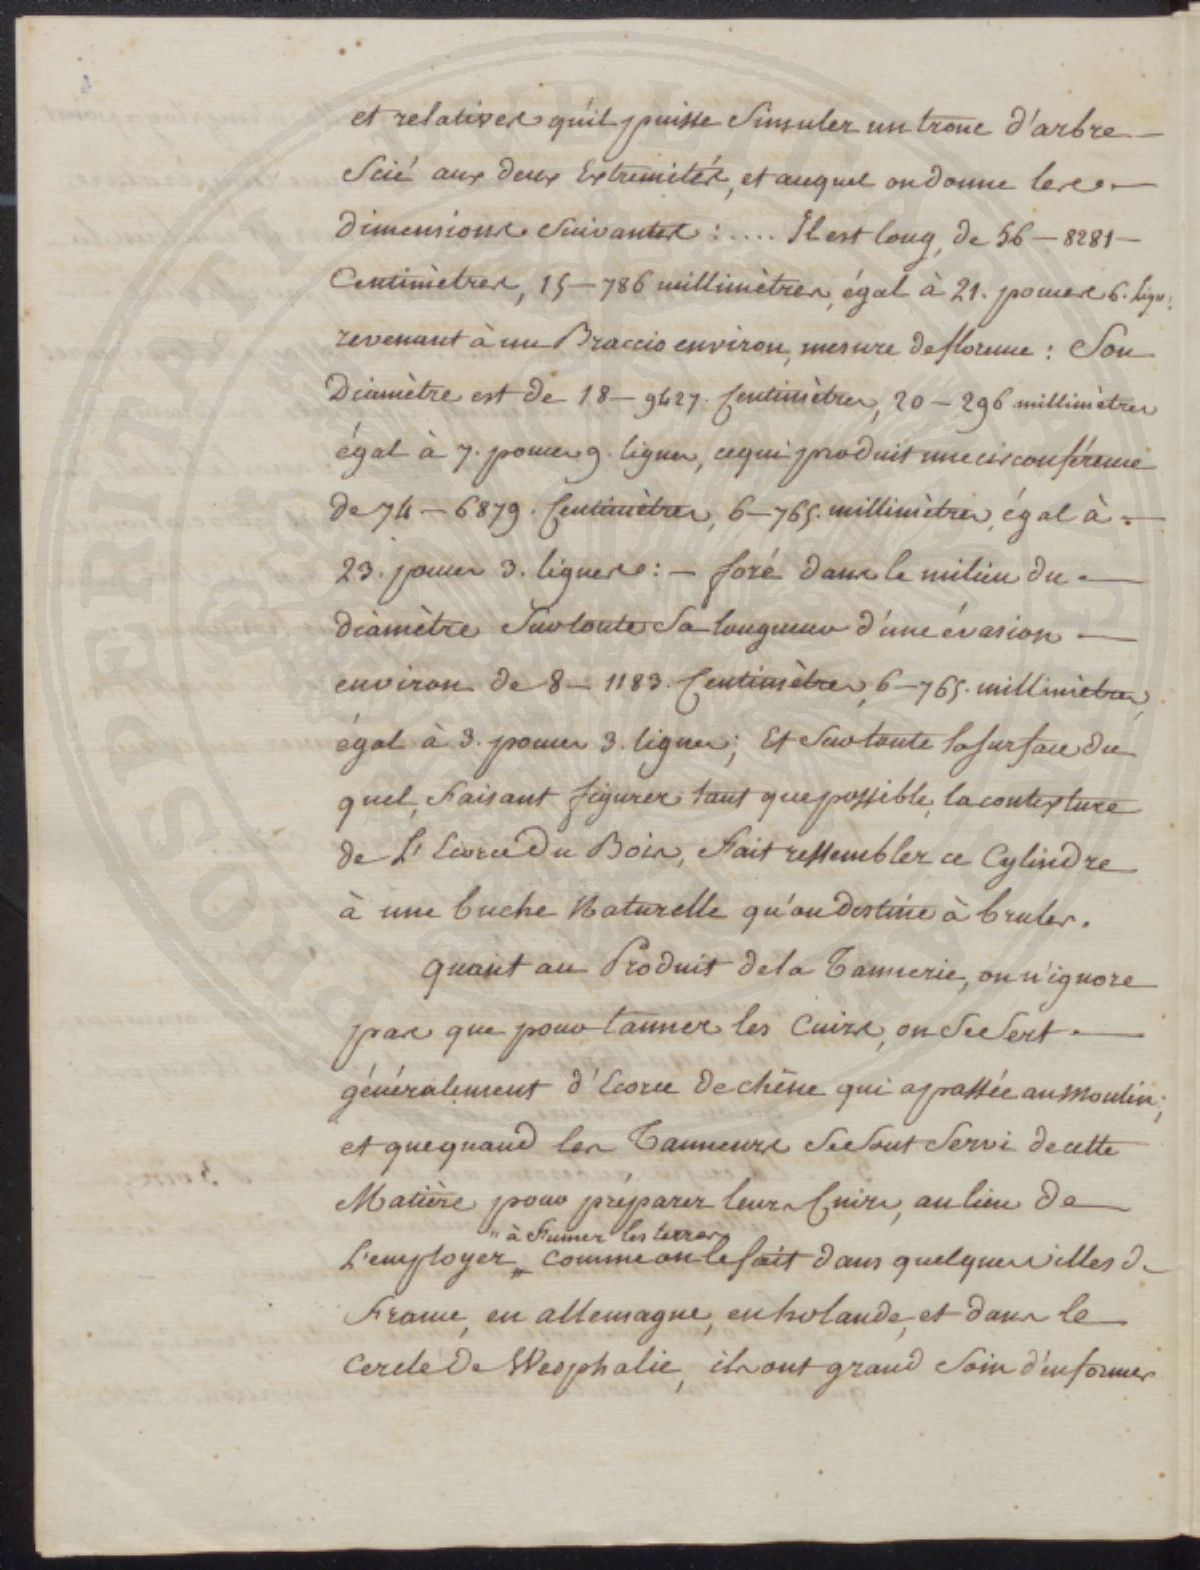 et relatives qu'il puisse Simuler un tronc d'arbre —
Scié aux deux Extremités, et auquel on donne les —
dimensions Suivantes : .... Il est long, de 56 — 8281 —
Centimètres, 15 — 786 millimètres, égal à 21. pouces 6. Lign:
revenant à un Braccio environ, mesure de florence : Son
Diamètre est de 18 — 9427. Centimètres, 20 — 296 millimètres
égal à 7. pouces 9. lignes, cequi produit une circonférence
de 74 — 6879. Centimètres, 6 — 765. millimètres, égal à —
23. pouces 3. lignes : — foré dans le milieu du —
diamètre Sur toute Sa longueur d'une évasion —
environ de 8 — 1183. Centimètres, 6 — 765. millimètres,
égal à 3. pouces 3. lignes; Et Sur toute la surface du
quel, Faisant figurer tant que possible, la contexture
de L'Ecorce Du Bois, Fait ressembler ce Cylindre
à une buche Naturelle qu'on destine à bruler.
Quant au Produit de la Tannerie, on n'ignore
pas que pour tanner les Cuirs, on Se Sert —
généralement d'Ecorce de chêne qui a passée au Moulin;
et que quand les Tanneurs Se Sont Servi de cette
Matière pour préparer leurs Cuirs, au lieu de —
" à Fumer les terres
L'employer „ comme on le fait dans quelques villes de
France, en allemagne, en holande, et dans le —
Cercle De Wesphalie, ils ont grand Soin d'en former
PROSPERITATI PUBLICAE